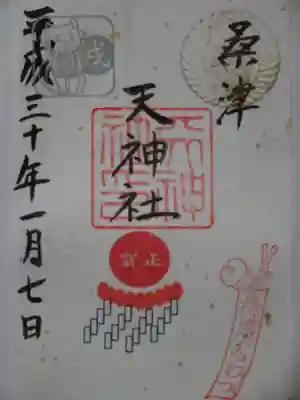 桑津
天神社
平成三十年一月七日
戌
天神社
正賀